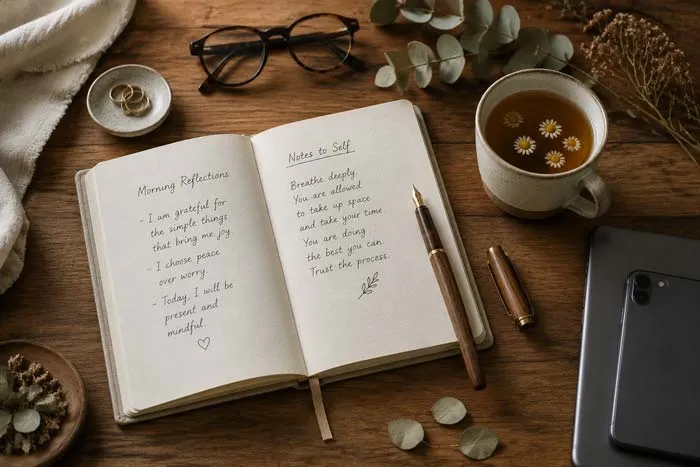 Morning Reflections
- I am grateful for
the simple things
that bring me joy.
- I choose peace
over worry.
- Today, I will be
present and
mindful.
Notes to Self
Breathe deeply.
You are allowed
to take up space
and take your time.
You are doing
the best you can.
Trust the process.